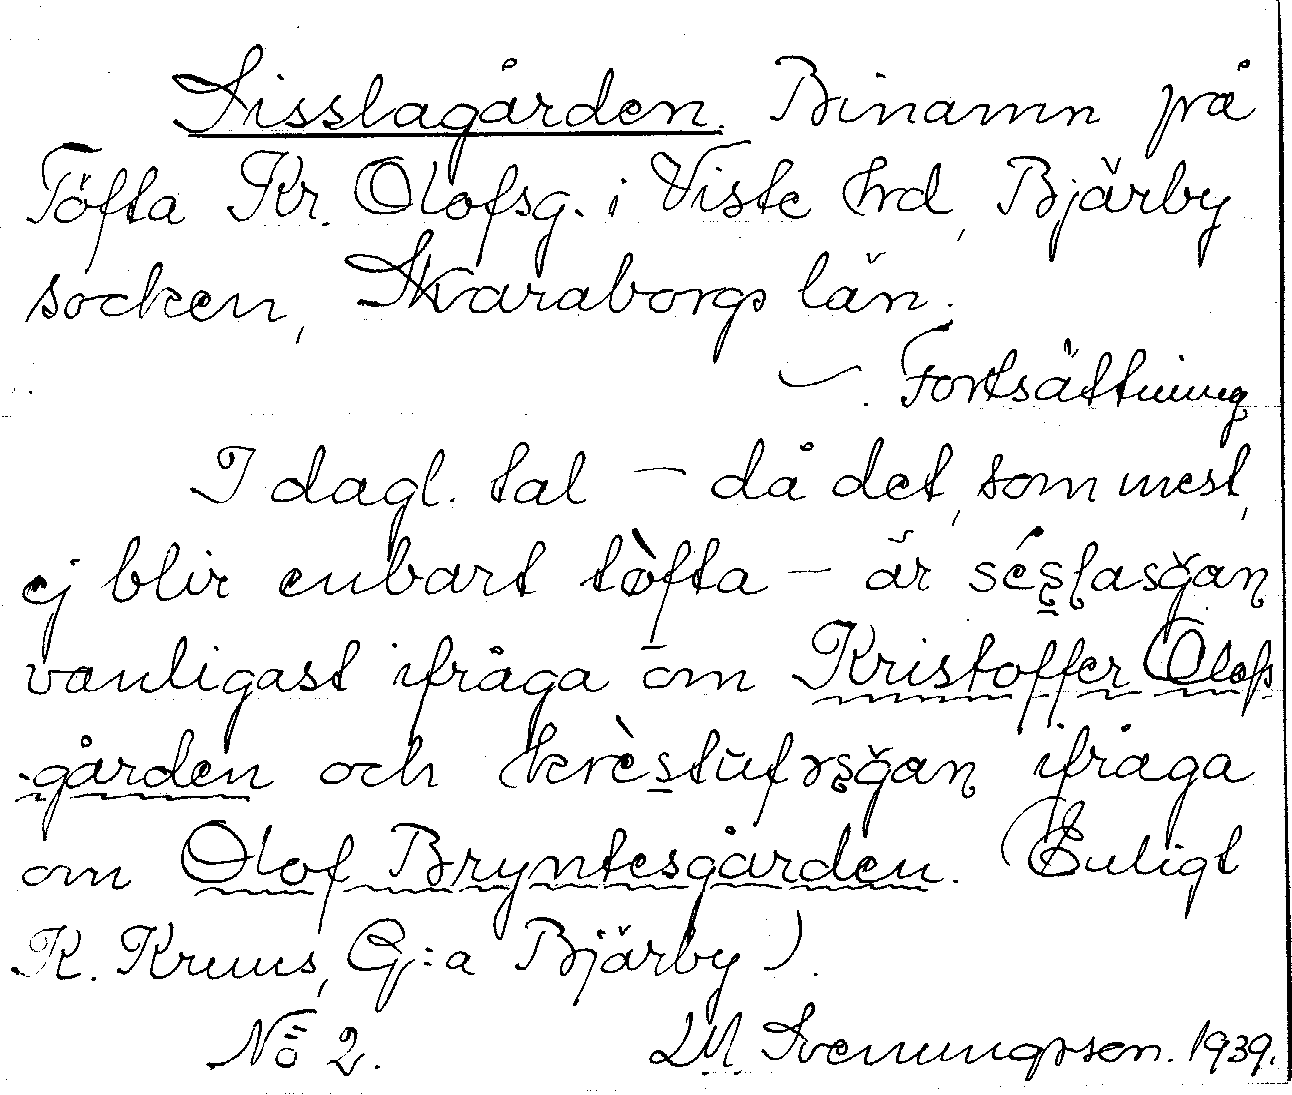 Sisslagården. Binamn på
Töfta Kr. Olofsg. i Viste hrd, Bjärby
socken, Skaraborgs län.
Fortsättning
I dagl. tal – då det, som mest,
ej blir enbart tòfta – är
vanligast ifråga om Kristoffer Olofs
-gården och ifråga
om Olof Bryntesgården. (Enligt
K. Kruus, G:a Bjärby).
No 2. LM. Svenungsson. 1939.